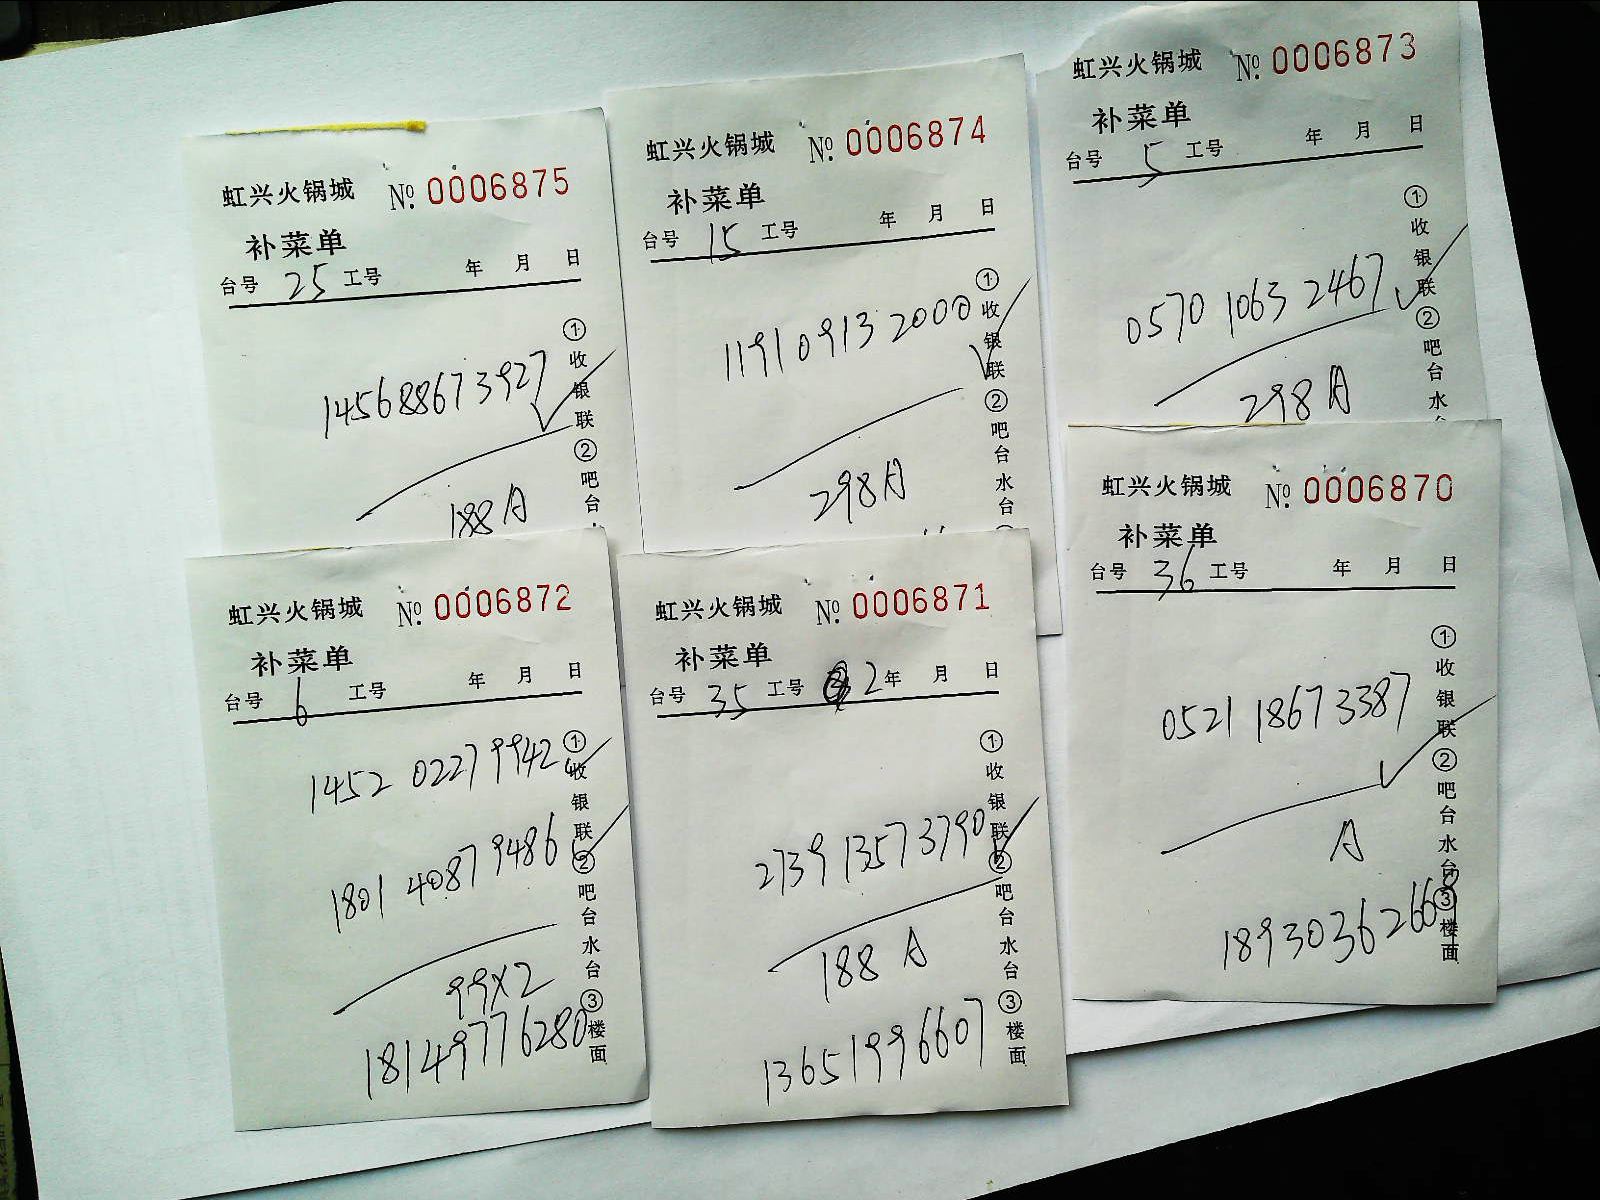 虹兴火锅城 №: 0006875
补菜单
台号 25 工号 年 月 日
145688673927
188A
①收银联②吧台
虹兴火锅城 №: 0006874
补菜单
台号 15 工号 年 月 日
1191 0913 2000
298A
①收银联②吧台水台
虹兴火锅城 №: 0006873
补菜单
台号 5 工号 年 月 日
0570 1063 2467
298 A
①收银联②吧台水
虹兴火锅城 №: 0006872
补菜单
台号 6 工号 年 月 日
1452 0227 9942
1801 4087 9486
99X2
18149776280
①收银联②吧台水台③楼面
虹兴火锅城 №: 0006871
补菜单
台号 35 工号 2 年 月 日
2739 1357 3790
188 A
13651996607
①收银联②吧台水台③楼面
虹兴火锅城 №: 0006870
补菜单
台号 36 工号 年 月 日
0521 1867 3387
A
18930362668
①收银联②吧台水台③楼面